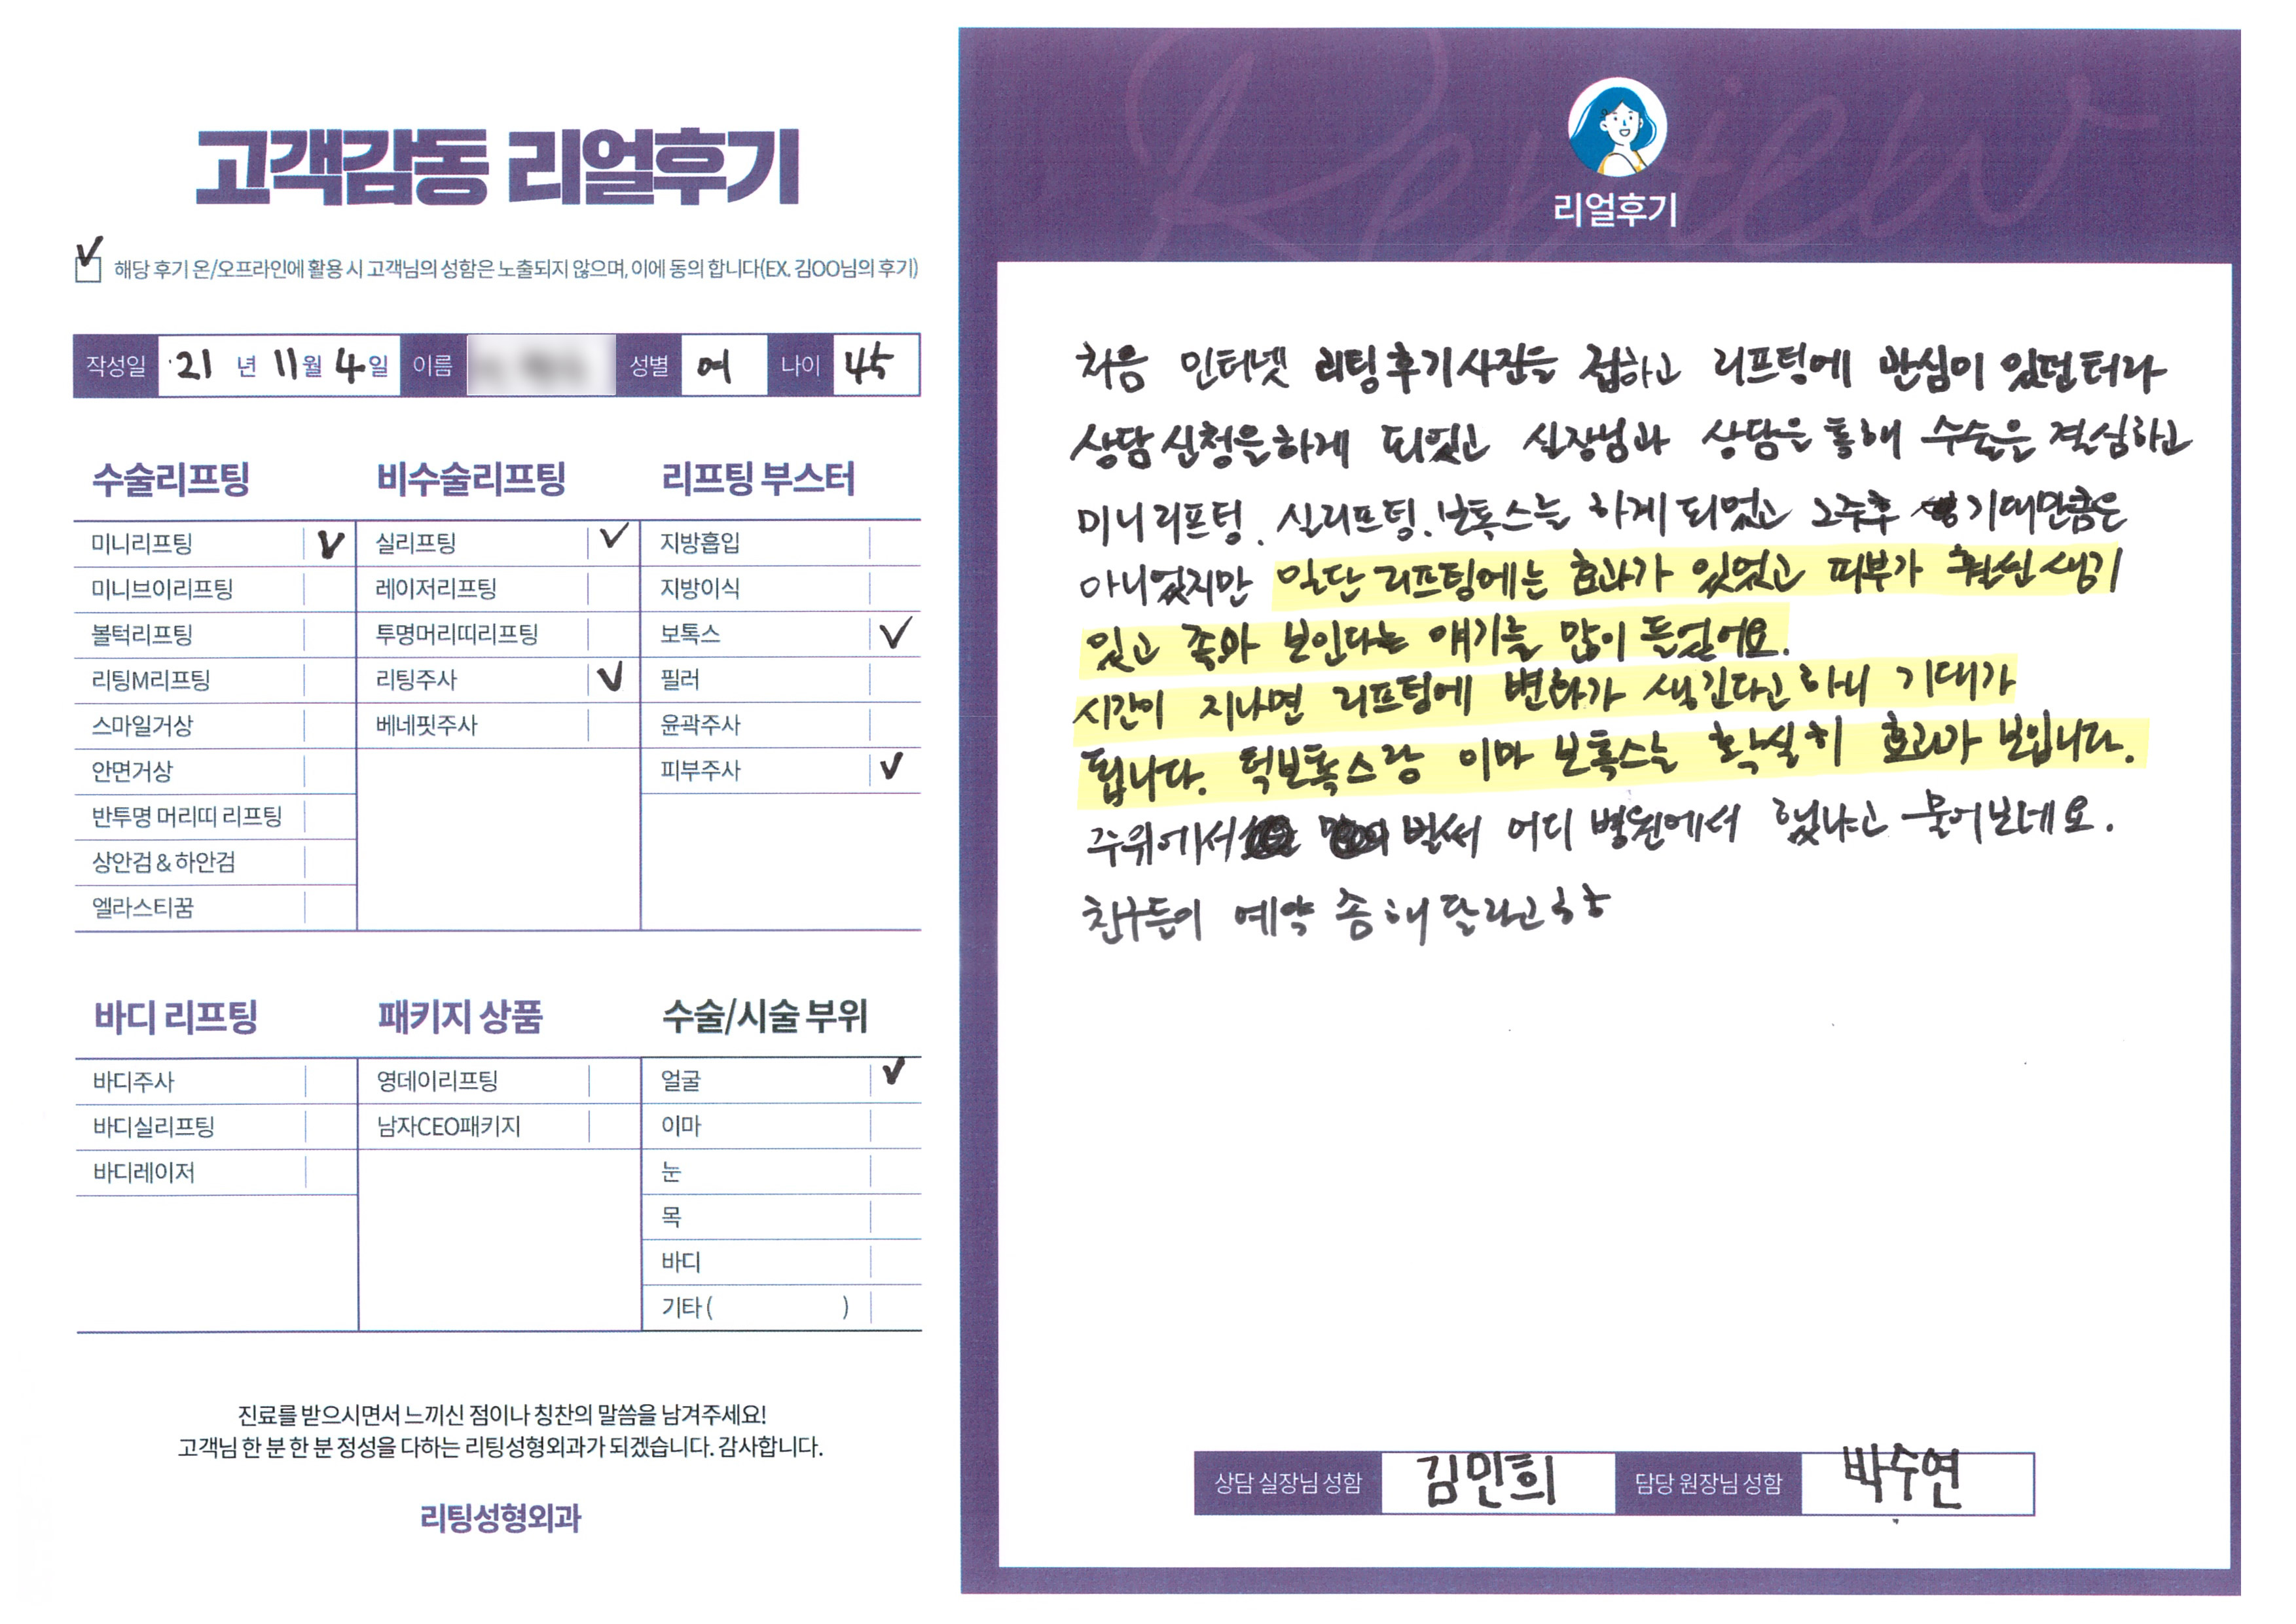 고객감동 리얼후기
해당 후기 온/오프라인에 활용 시 고객님의 성함은 노출되지 않으며, 이에 동의 합니다(EX. 김OO님의 후기)
작성일 '21 년 11월 4일 이름 성별 여 나이 45
수술리프팅
미니리프팅 V
미니브이리프팅
볼턱리프팅
리팅M리프팅
스마일거상
안면거상
반투명 머리띠 리프팅
상안검 & 하안검
엘라스티꿈
비수술리프팅
실리프팅 V
레이저리프팅
투명머리띠리프팅
리팅주사 V
베네핏주사
리프팅 부스터
지방흡입
지방이식
보톡스 V
필러
윤곽주사
피부주사 V
바디 리프팅
바디주사
바디실리프팅
바디레이저
패키지 상품
영데이리프팅
남자CEO패키지
수술/시술 부위
얼굴 V
이마
눈
목
바디
기타 ( )
진료를 받으시면서 느끼신 점이나 칭찬의 말씀을 남겨주세요!
고객님 한 분 한 분 정성을 다하는 리팅성형외과가 되겠습니다. 감사합니다.
리팅성형외과
Review
리얼후기
처음 인터넷 리팅후기사진을 접하고 리프팅에 관심이 있던터라
상담신청을하게 되었고 실장님과 상담을 통해 수술은 결심하고
미니리프팅. 실리프팅. 보톡스를 하게되었고 2주후 기대만큼은
아니었지만 일단 리프팅에는 효과가 있었고 피부가 훨씬 생기
있고 좋아 보인다는 얘기를 많이 들었어요.
시간이 지나면 리프팅에 변화가 생긴다고하니 기대가
됩니다. 턱보톡스랑 이마 보톡스는 확실히 효과가 보입니다.
주위에서 벌써 어디 병원에서 했냐고 물어보네요.
친구들이 예약 좀 해달라고ㅎㅎ
상담 실장님 성함 김민희 담당 원장님 성함 박수연